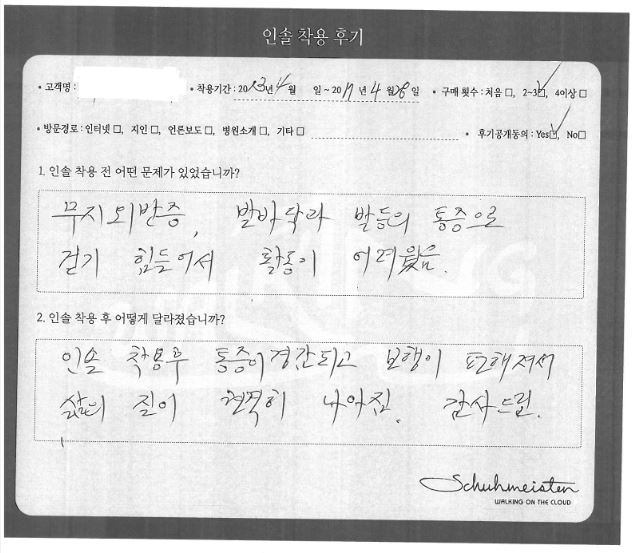 인솔 착용 후기
• 고객명 : • 착용기간 : 2013년 4월 일 ~ 2017년 4월 28일 • 구매 횟수 : 처음 □, 2~3☑, 4이상 □
• 방문경로 : 인터넷 □, 지인 □, 언론보도 □, 병원소개 □, 기타 □ • 후기공개동의 : Yes☑, No□
1. 인솔 착용 전 어떤 문제가 있었습니까?
무지외반증, 발바닥과 발등의 통증으로
걷기 힘들어서 활동이 어려웠음.
2. 인솔 착용 후 어떻게 달라졌습니까?
인솔 착용후 통증이 경감되고 보행이 편해져서
삶의 질이 현격히 나아짐. 감사드림.
Schuhmeister
WALKING ON THE CLOUD